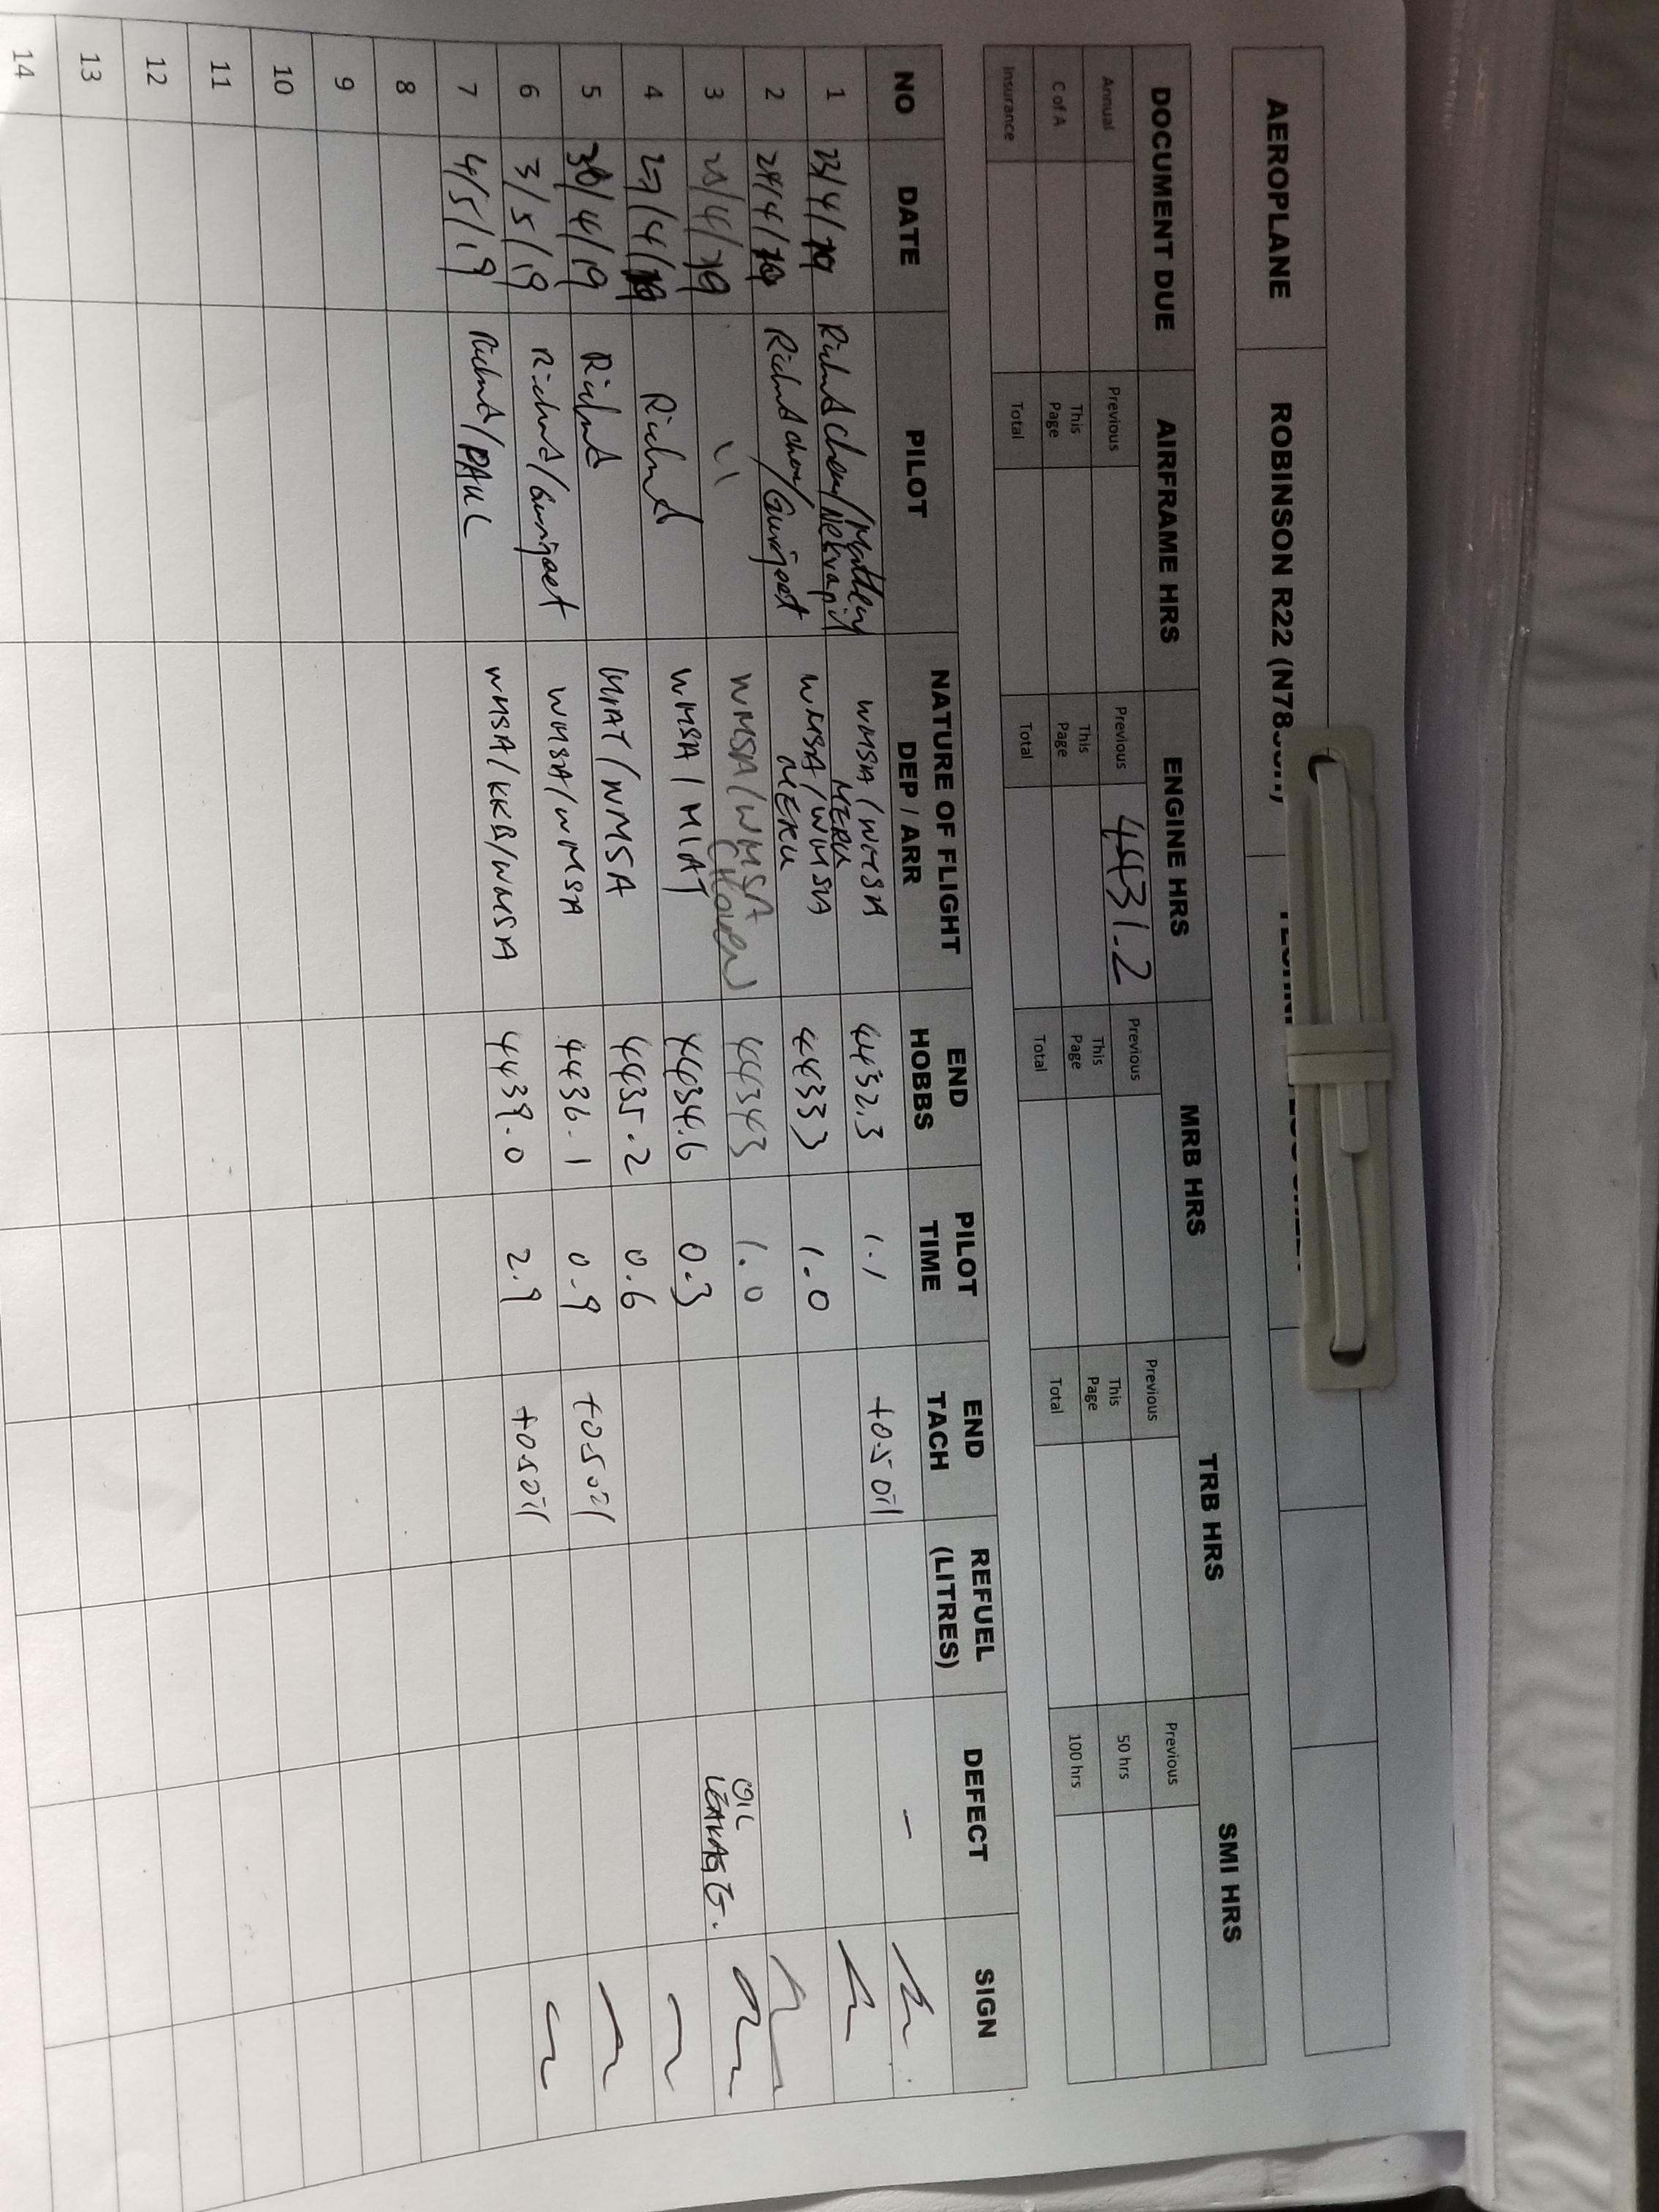 AEROPLANE ROBINSON R22
DOCUMENT DUE AIRFRAME HRS ENGINE HRS MRB HRS TRB HRS SMI HRS
Annual Previous Previous 4431.2 Previous Previous Previous
C of A This Page This Page This Page This Page 50 hrs
Insurance Total Total Total Total 100 hrs
NO DATE PILOT NATURE OF FLIGHT DEP / ARR END HOBBS PILOT TIME END TACH REFUEL (LITRES) DEFECT SIGN
1 23/4/19 WMSA/WMSA MERU 4432.3 1.1 +0.5 oil –
2 24/4/19 Gurujeet WMSA/WMSA MERU 44333 1.0
3 /4/19 '' WMSA/WMSA 44343 1.0
4 27/4/19 Richard WMSA/MIAT 4434.6 0.3 OIL LEAKAGE.
5 30/4/19 Richard MIAT/WMSA 4435.2 0.6
6 3/5/19 Richard/Gurujeet WMSA/WMSA 4436.1 0.9 +0.5 oil
7 4/5/19 Richard/PAUL WMSA/KKB/WMSA 4439.0 2.9 +0.5 oil
8
9
10
11
12
13
14